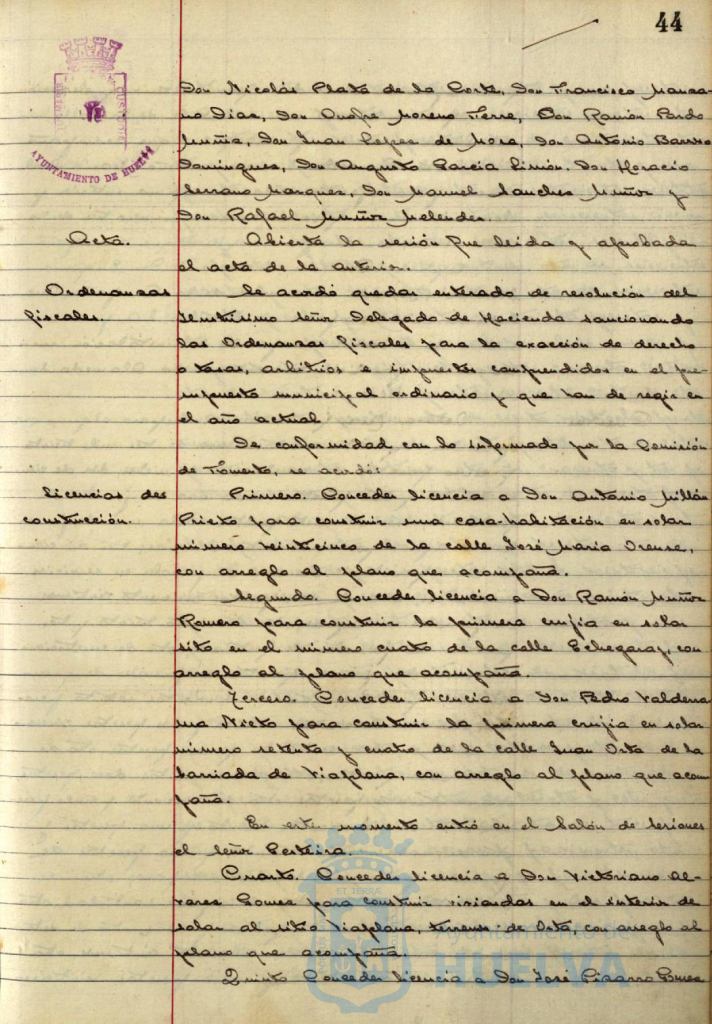 44
AYUNTAMIENTO DE HUELVA
Don Nicolás Plata de la Corte, Don Francisco Manza-
no Dias, Don Onofre Moreno Terre, Don Ramón Pardo
Muñiz, Don Juan Lopez de Mora, Don Antonio Barroso
Dominguez, Don Augusto Garcia Limón, Don Horacio
Serrano Marquez, Don Manuel Sanchez Muñoz y
Don Rafael Muñoz Melendez.
Acta.
Abierta la sesión fue leida y aprobada
el acta de la anterior.
Ordenanzas
fiscales.
Se acordó quedar enterado de resolución del
Señor Delegado de Hacienda sancionando
las Ordenanzas fiscales para la exacción de derecho
o tasas, arbitrios e impuestos comprendidos en el pre-
supuesto municipal ordinario y que han de regir en
el año actual
De conformidad con lo informado por la Comisión
de Fomento, se acordó:
Licencias de
construcción.
Primero. Conceder licencia a Don Antonio Millán
Prieto para construir una casa-habitación en solar
número veinticinco de la calle José Maria Orense,
con arreglo al plano que acompaña.
Segundo. Conceder licencia a Don Ramón Muñoz
Romero para construir la primera crujia en solar
sito en el número cuatro de la calle Echegaray, con
arreglo al plano que acompaña.
Tercero. Conceder licencia a Don Pedro Valderra
ma Nieto para construir la primera crujia en solar
número setenta y cuatro de la calle Juan Orta de la
barriada de Viaplana, con arreglo al plano que acom
paña.
En este momento entró en el Salón de Sesiones
el señor Terteira.
Cuarto. Conceder licencia a Don Victoriano Al-
varez Gomez para construir viviendas en el interior de
solar al sitio Viaplana, terrenos de Orta, con arreglo al
plano que acompaña.
ET TERRAE
Ayuntamiento de
HUELVA
Quinto Conceder licencia a Don José Pizarro Gomez